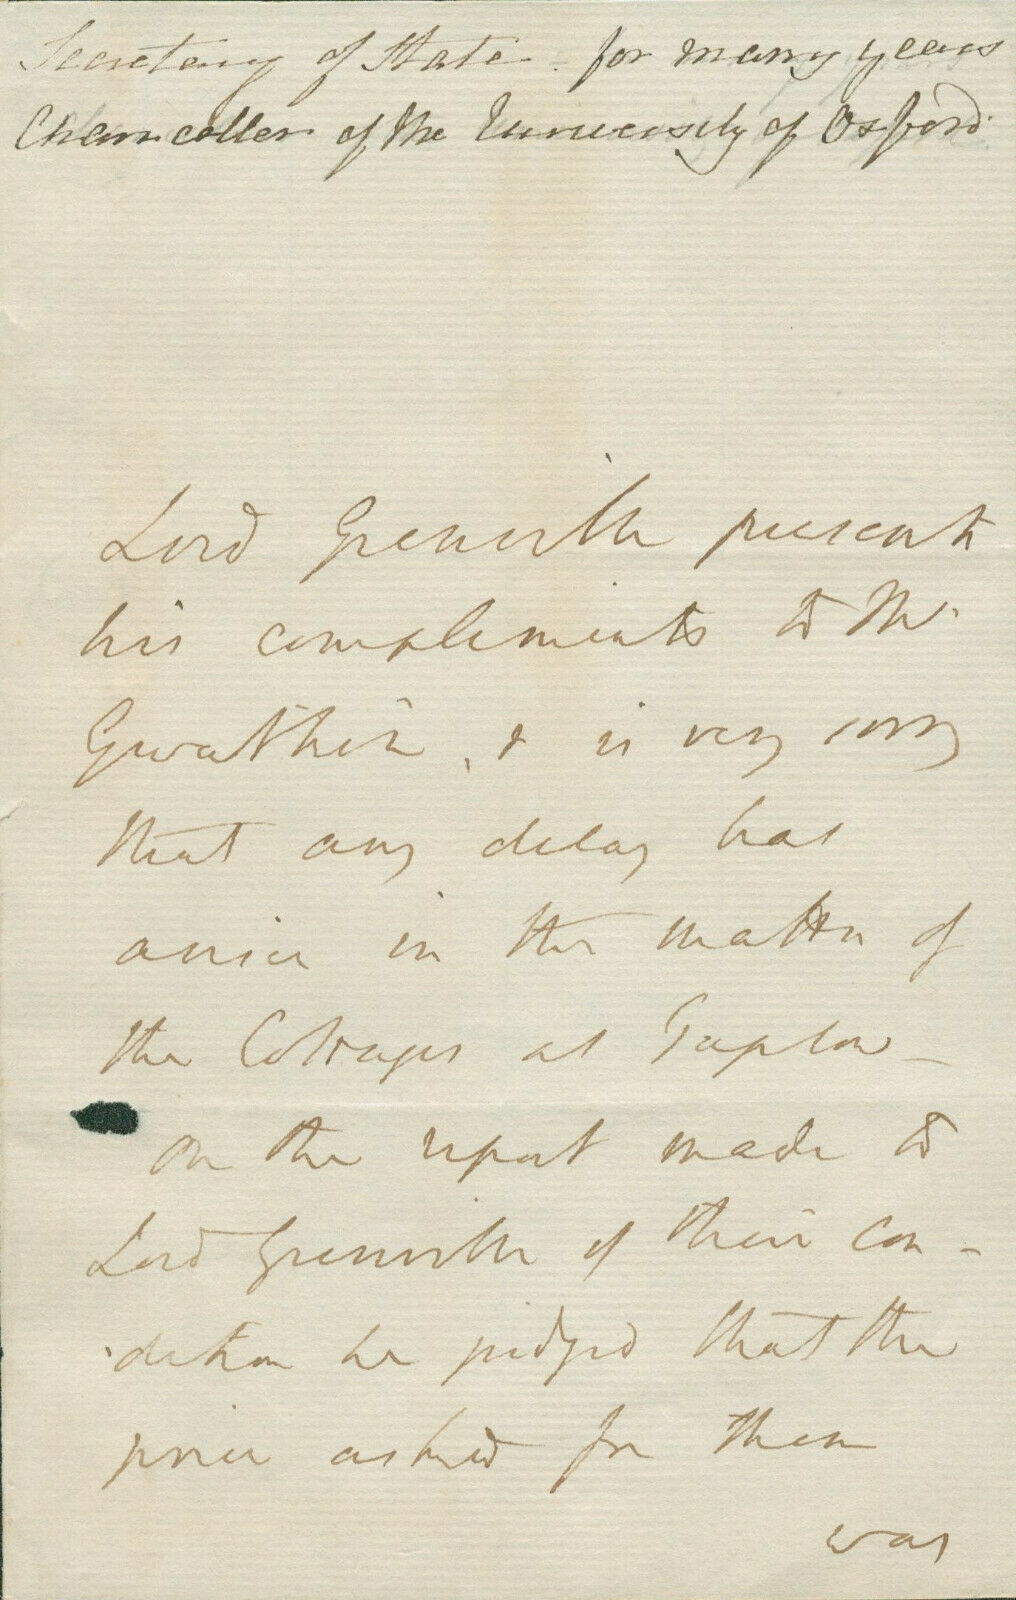 Secretary of State - for many years
Chancellor of the University of Oxford.
Lord Grenville presents
his compliments to Mr.
Gwatkin, & is very sorry
that any delay has
arisen in the matter of
the Cottages at Taplow -
on the report made to
Lord Grenville of their con-
dition he judged that the
price asked for them
was